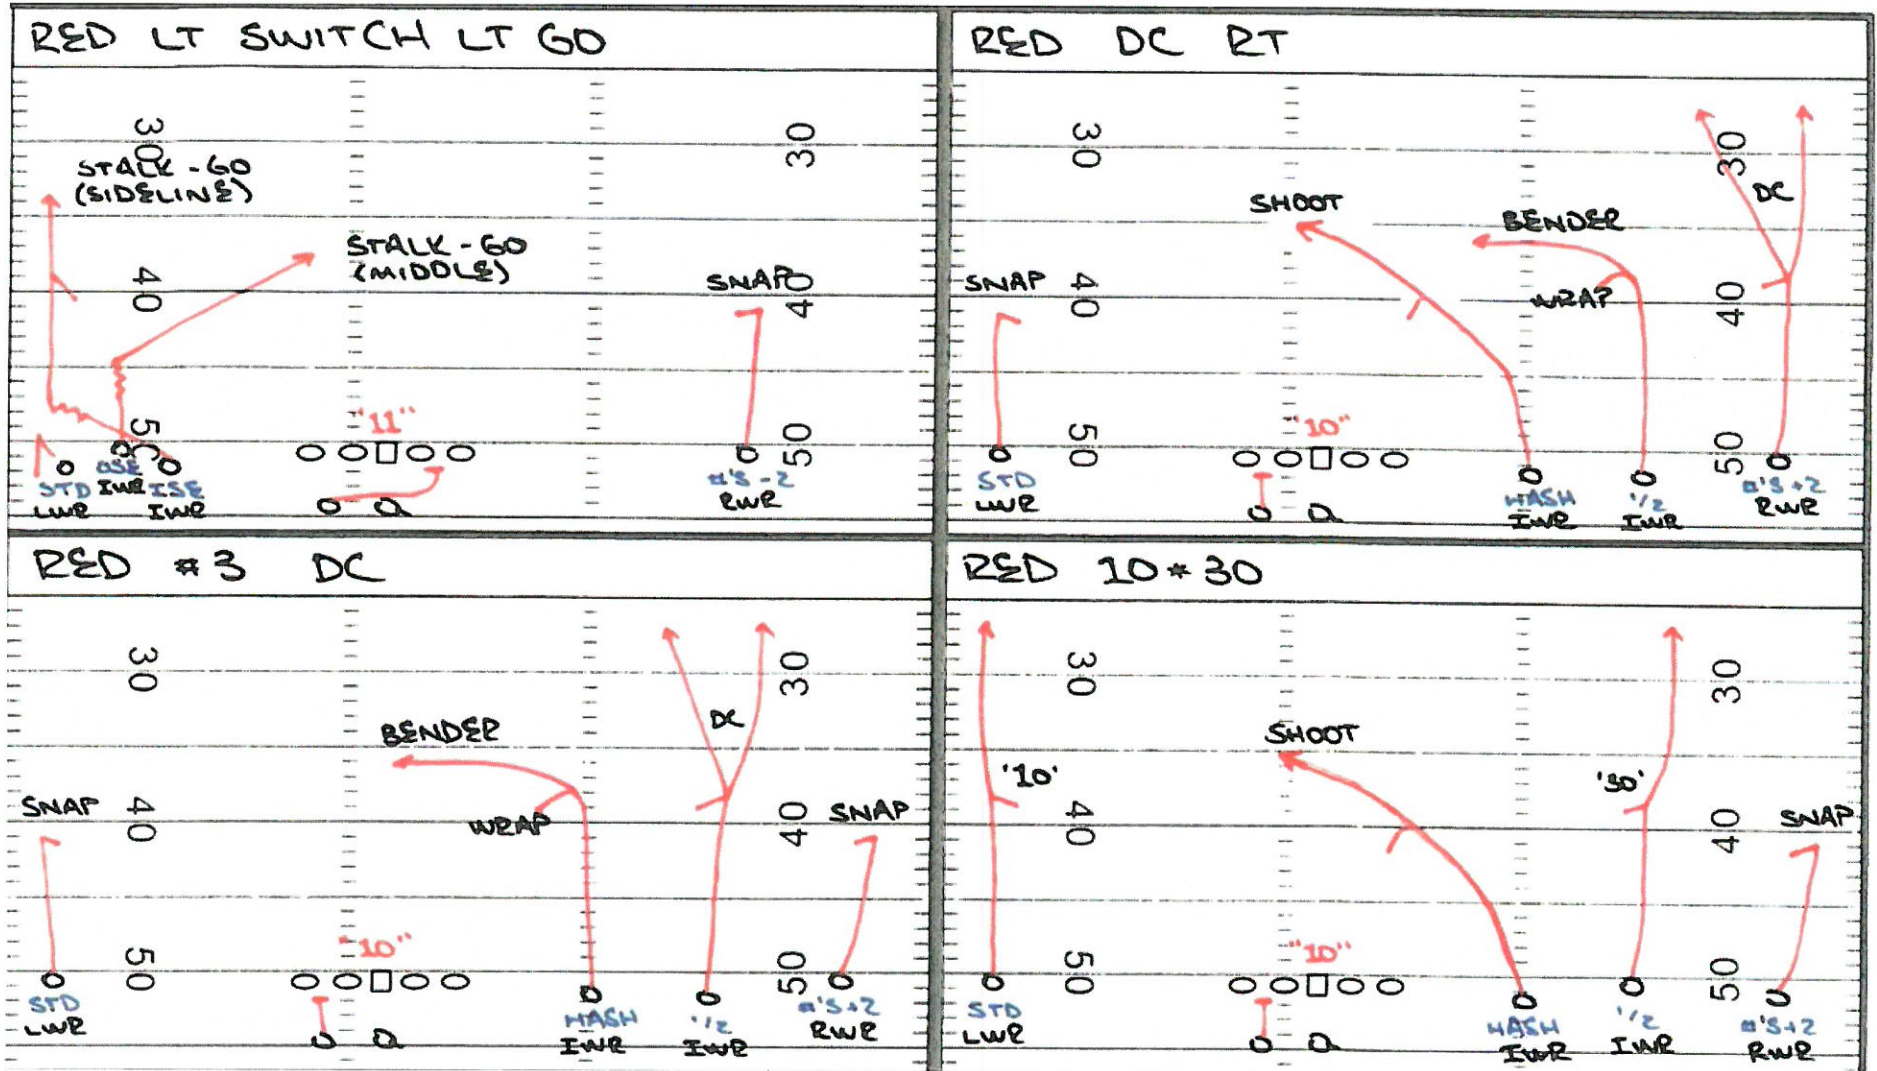 RED LT SWITCH LT GO
30
30
STALK - GO
(SIDELINE)
STALK - GO
(MIDDLE)
40
SNAP
40
"11"
50
50
STD
LWR
OSE
IWR
ISE
IWR
#'S - 2
RWR
RED DC RT
30
30
DC
SHOOT
BENDER
SNAP
40
WRAP
40
"10"
50
50
STD
LWR
HASH
IWR
1/2
IWR
#'S + 2
RWR
RED #3 DC
30
30
DC
BENDER
SNAP
40
WRAP
40
SNAP
"10"
50
50
STD
LWR
HASH
IWR
1/2
IWR
#'S + 2
RWR
RED 10 * 30
30
30
SHOOT
'10'
'30'
40
40
SNAP
"10"
50
50
STD
LWR
HASH
IWR
1/2
IWR
#'S + 2
RWR